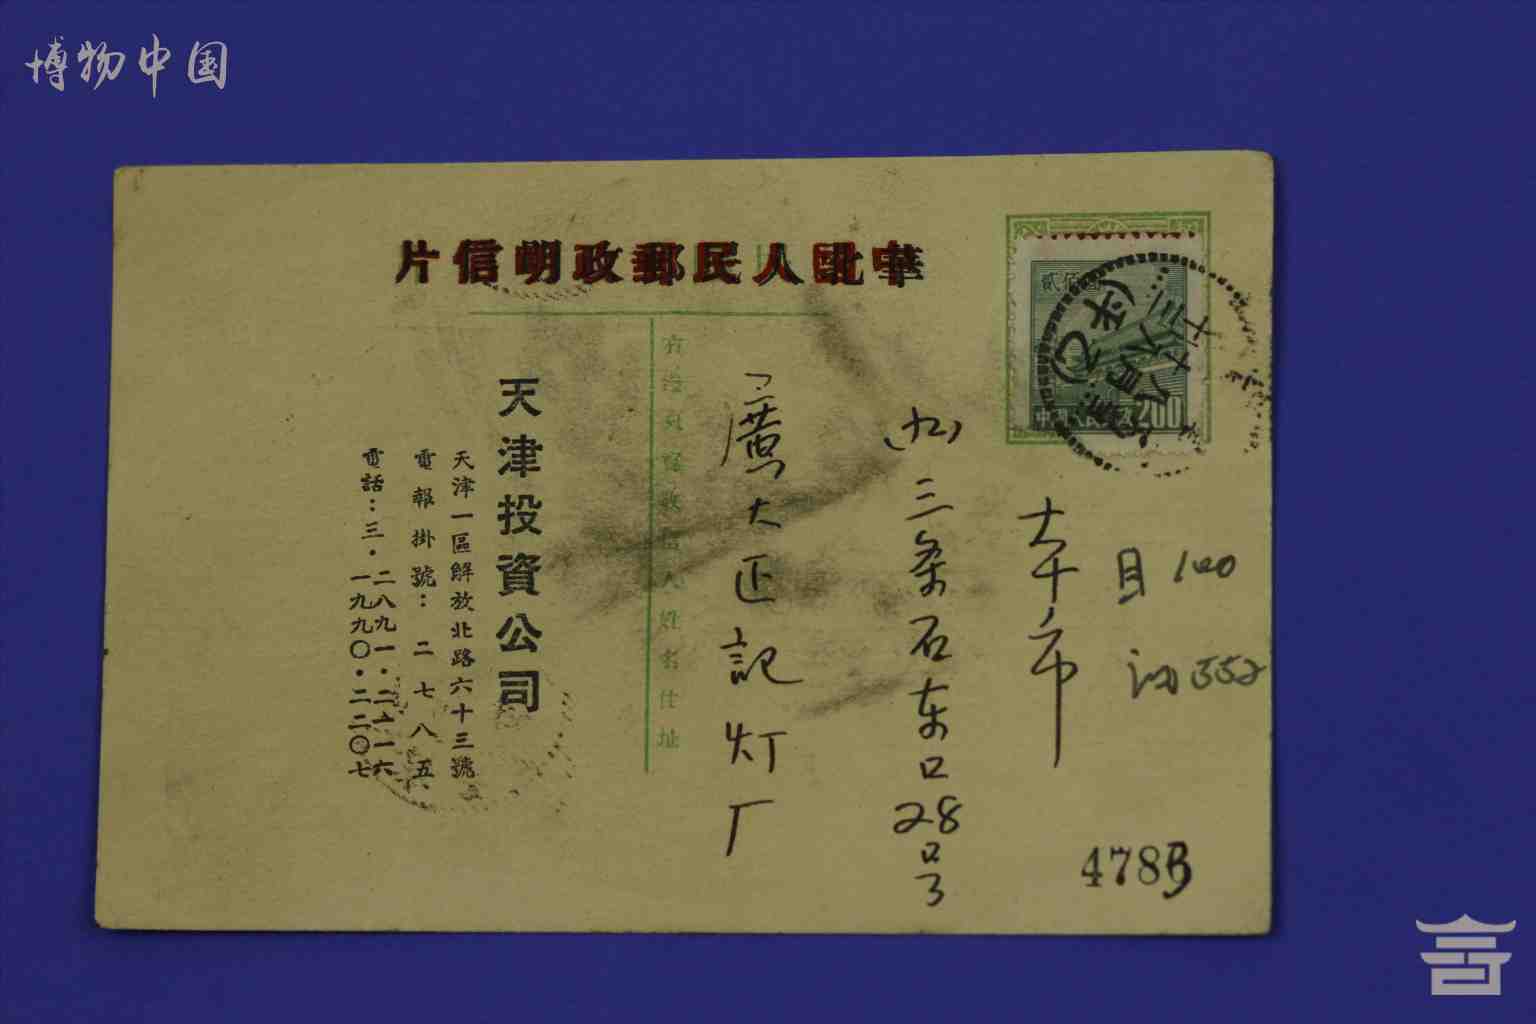 博物中国
華北人民郵政明信片
貳佰圓
中國人民郵政 200
目 100
本市
(九)三条石东口28号
廣大正記灯厂
右邊只寫收信人姓名住址
天津投資公司
天津一區解放北路六十三號
電報掛號:二七八五
電話:三·二八九一·二六一六
一九九〇·二二〇七
478B